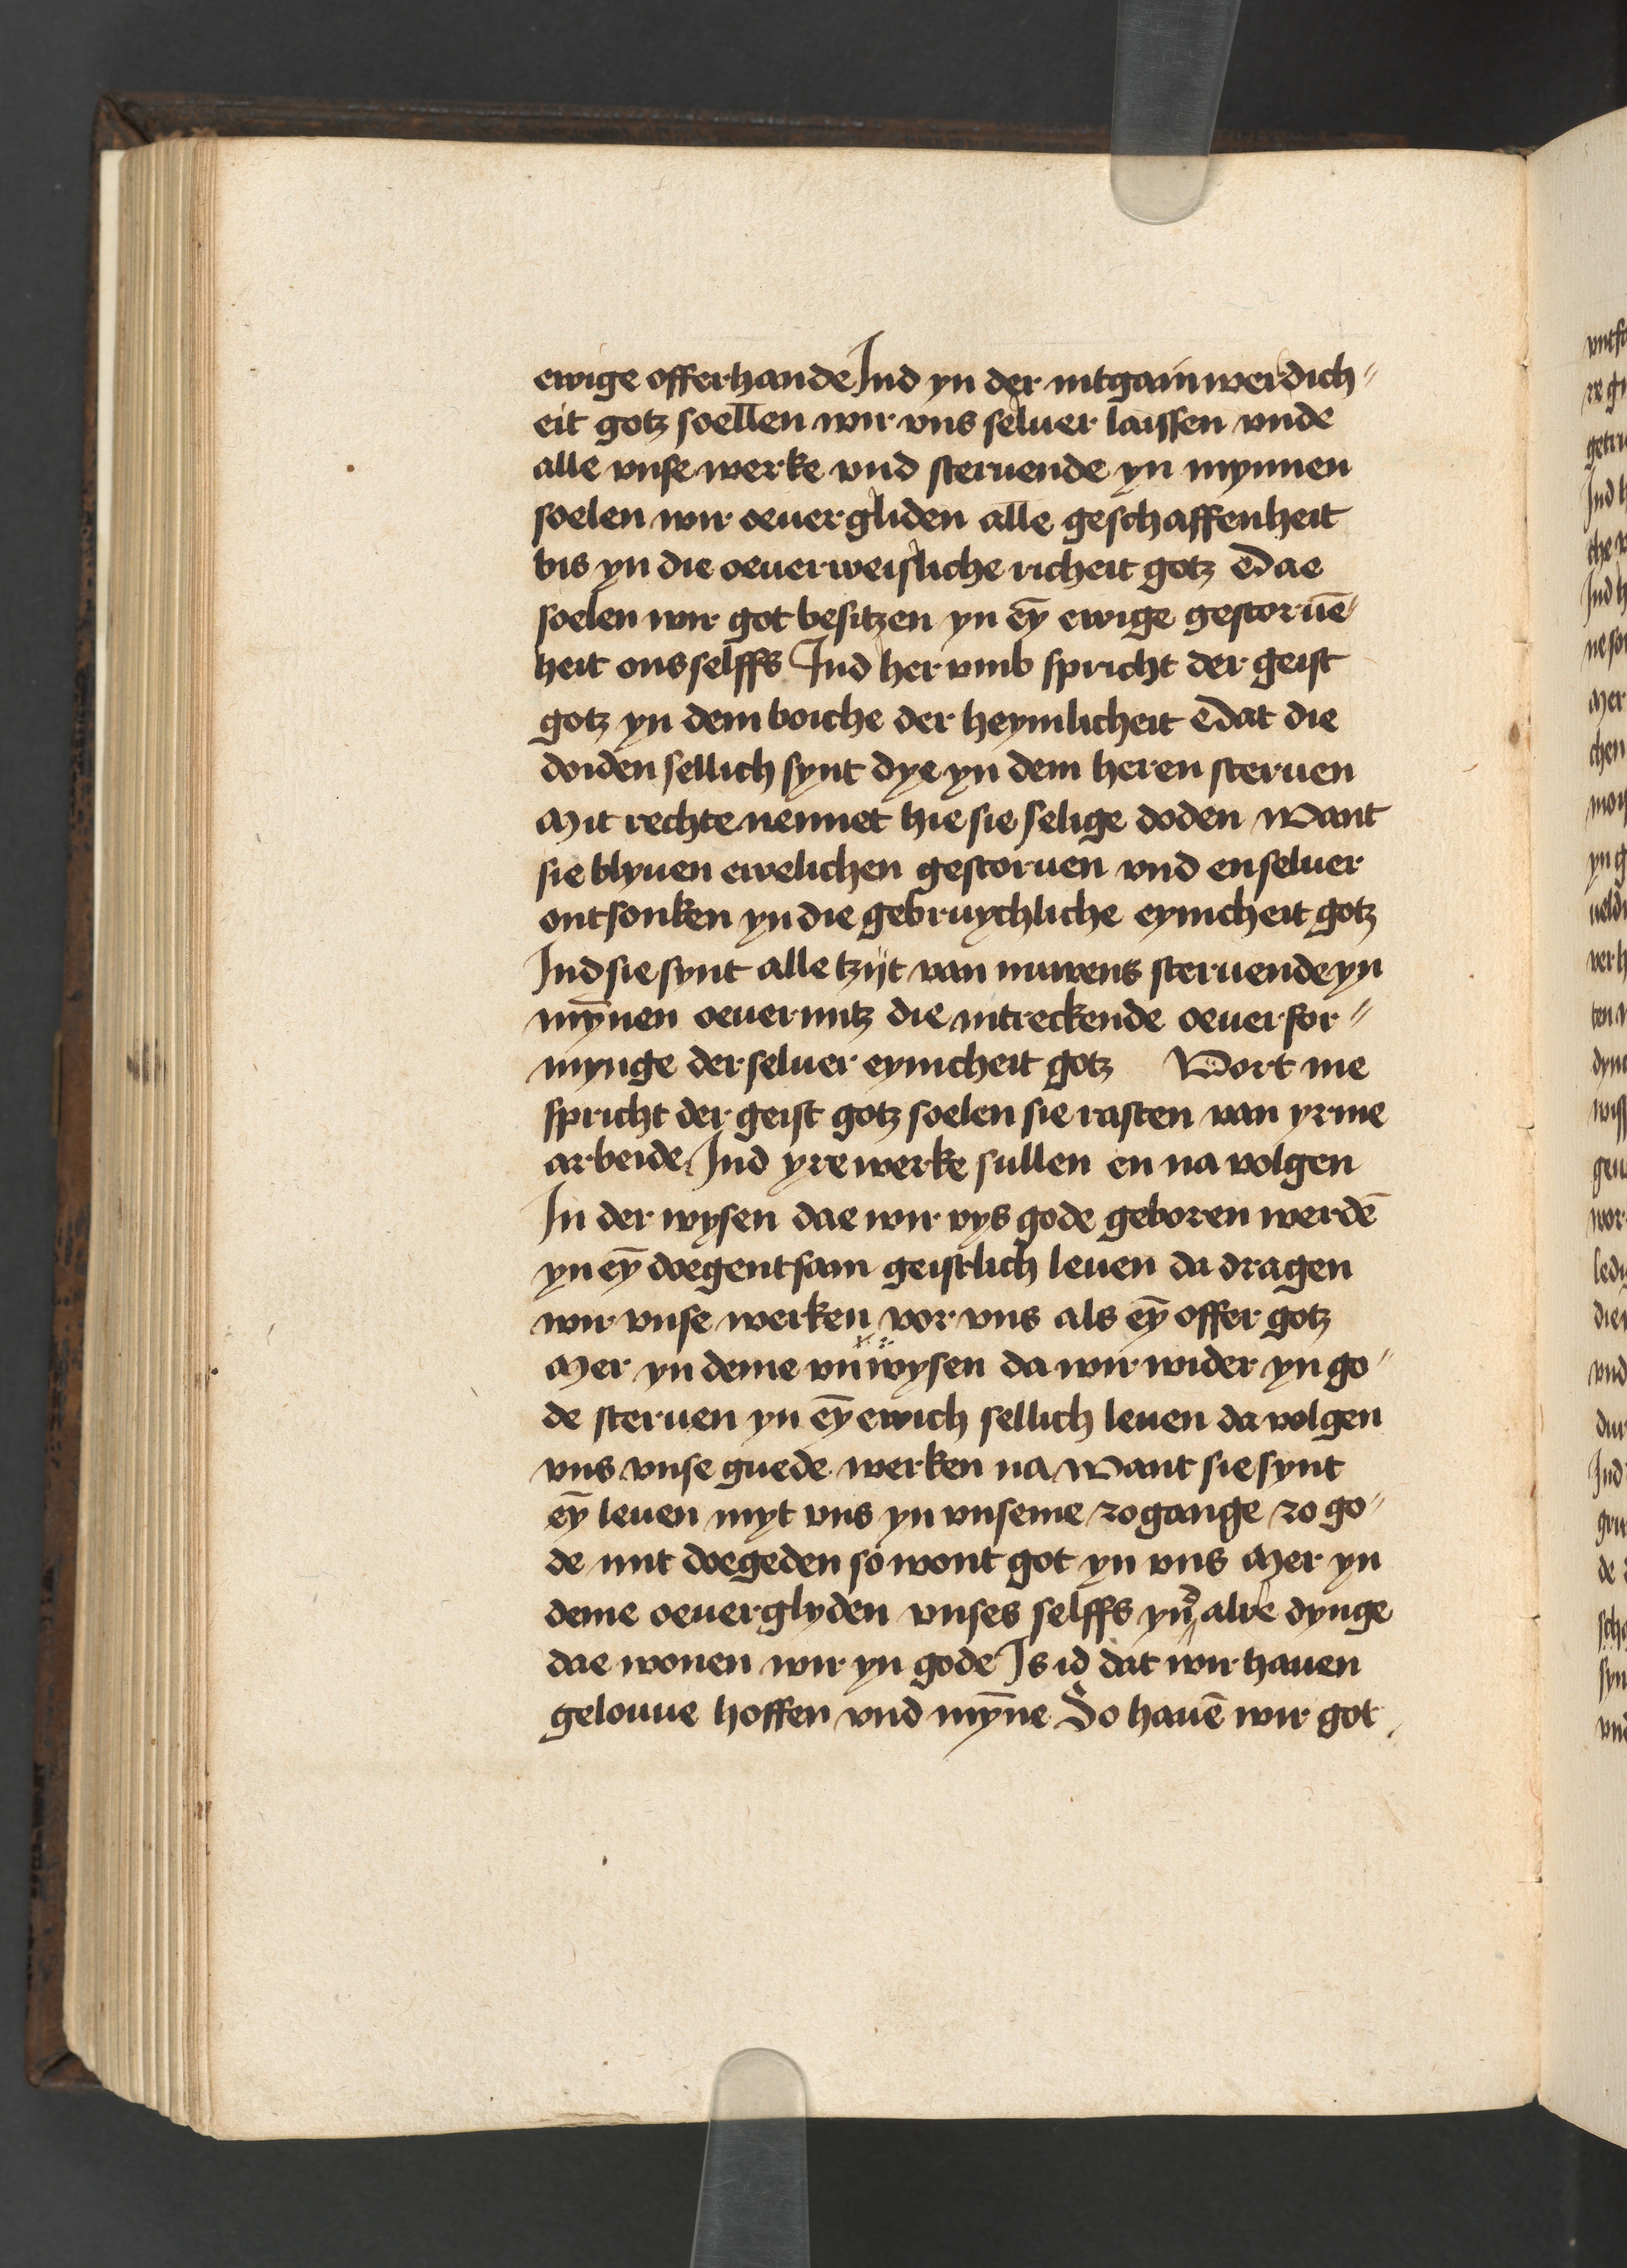 ewige offerhande Ind yn der intgainwerdich〃
eit gotz soellen wir vns seluer laissen vnde
alle vnse werke vnd steruende yn mynnen
soelen wir oeuergliden alle geschaffenheit
bis yn die oeuerweisliche richeit gotz Dae
soelen wir got besitzen yn eȳ ewige gestoruē〃
heit onsselffs Ind her vmb spricht der geist
gotz yn dem boiche der heymlicheit Dat die
doiden sellich synt dye yn dem heren steruen
Mit rechte nennet hie sie selige doden Want
sie blyuen ewelichen gestoruen vnd enseluer
ontsonken yn die gebruychliche eynicheit gotz
Ind sie synt alle tzijt van nuwens steruende yn
mȳnen oeuermitz die intreckende oeuerfor〃
mynge der seluer eynicheit gotz Vort me
spricht der geist gotz soelen sie rasten van yrme
arbeide Ind yre werke sullen en na volgen
In der wysen dae wir vys gode geboren werdē
yn eȳ doegentsam geistlich leuen da dragen
wir vnse werken vor vns als eȳ offer gotz
Mer yn deme vnwysen da wir wider yn go〃
de steruen yn eȳ ewich sellich leuen da volgen
vns vnse guede werken na Want sie synt
eȳ leuen myt vns yn vnseme zogange zo go〃
de mit doegeden so wont got yn vns Mer yn
deme oeuerglyden vnses selffs yn alre dynge
dae wonen wir yn gode Is id dat wir hauen
gelouue hoffen vnd mȳne So hauē wir got